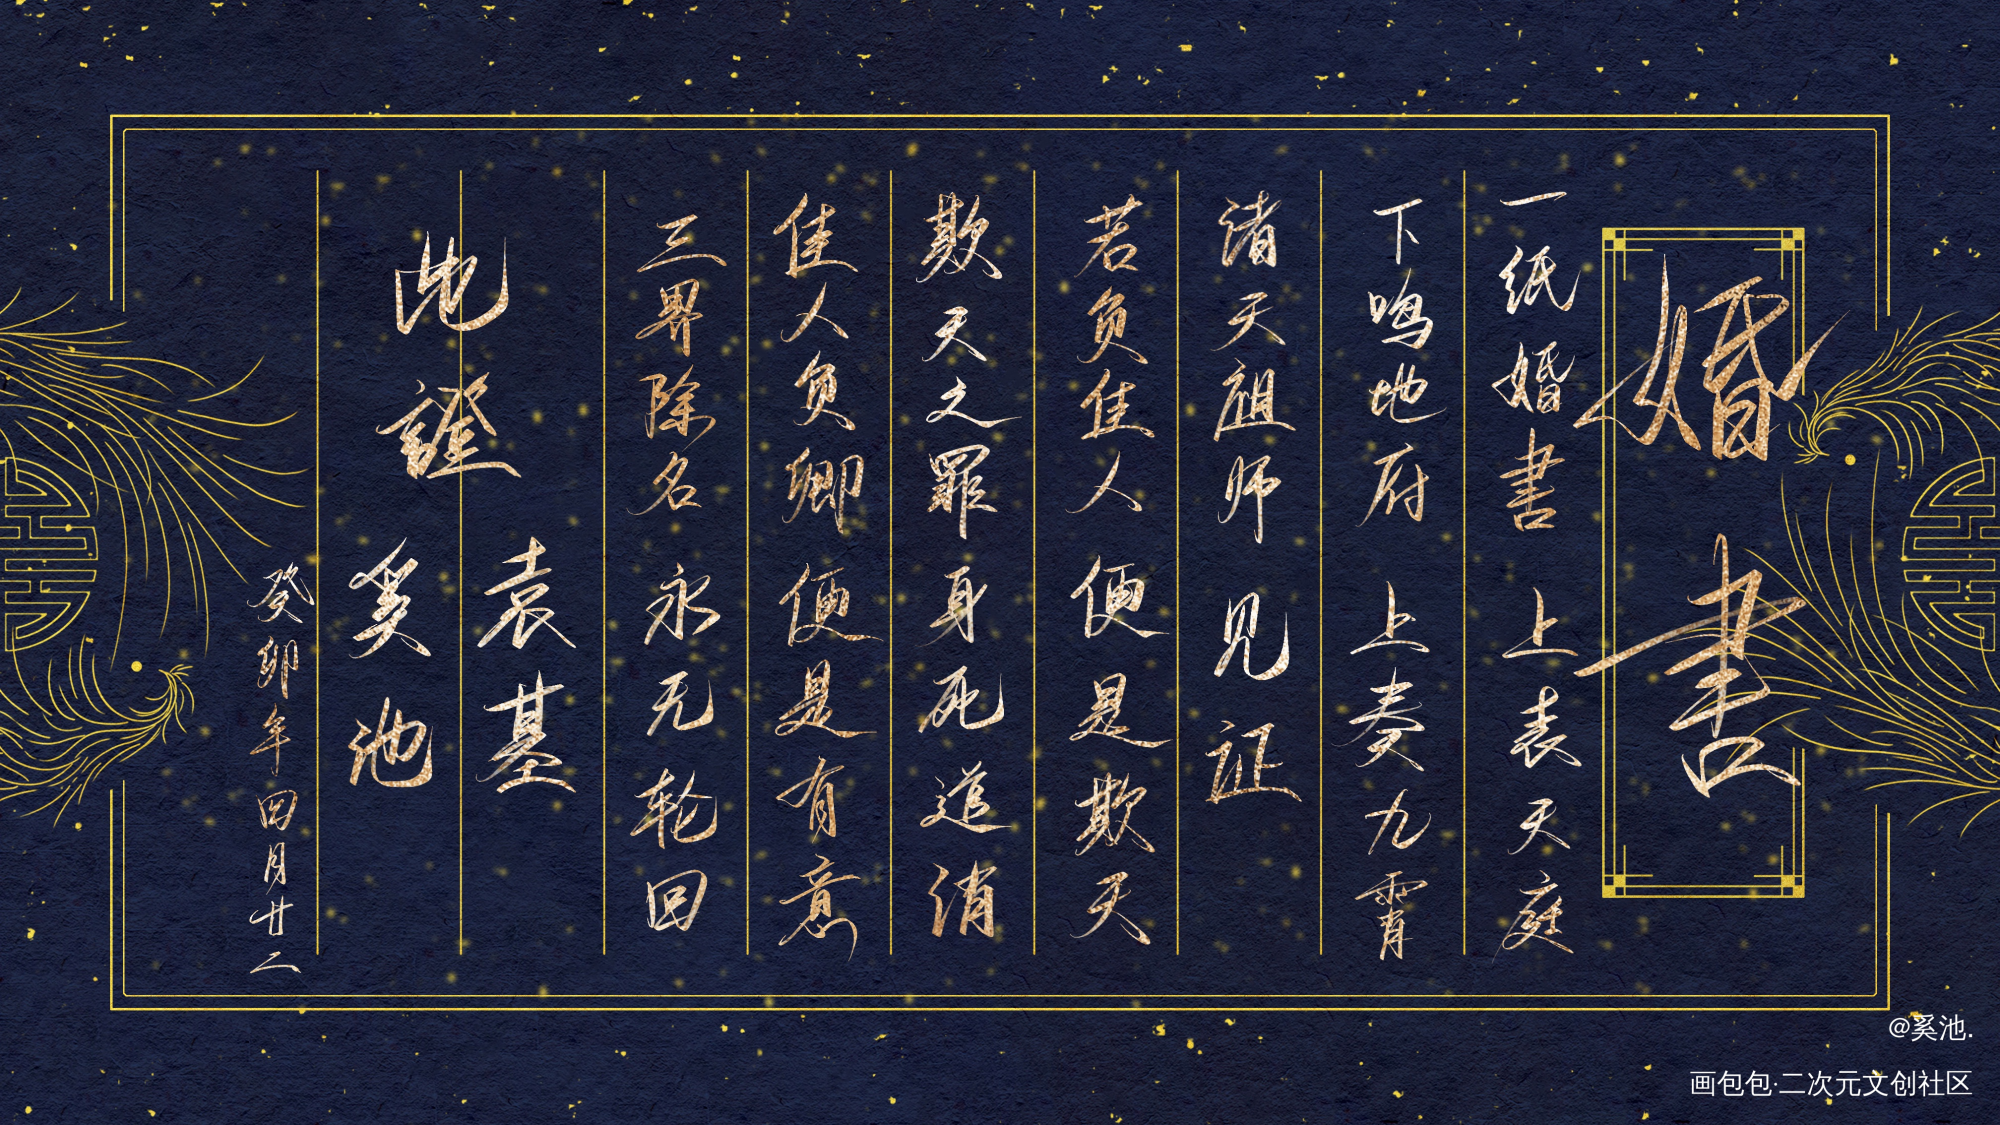 婚書
一纸婚書 上表天庭
下鸣地府 上奏九霄
诸天祖师 见证
若负佳人 便是欺天
欺天之罪 身死道消
佳人负卿 便是有意
三界除名 永无轮回
此證
袁基
奚池
癸卯年四月廿二
@奚池.
画包包·二次元文创社区